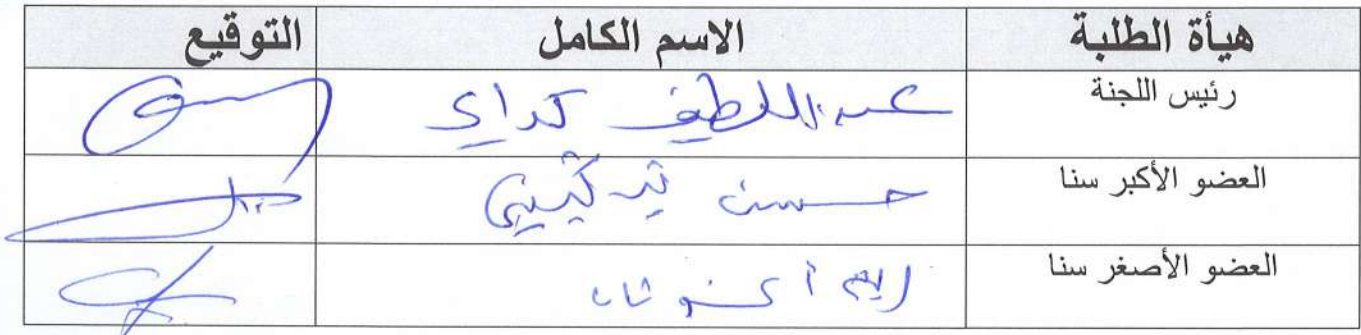 هيأة الطلبة الاسم الكامل التوقيع
رئيس اللجنة عبد اللطيف كداي
العضو الأكبر سنا حسن تيدكيني
العضو الأصغر سنا ريم